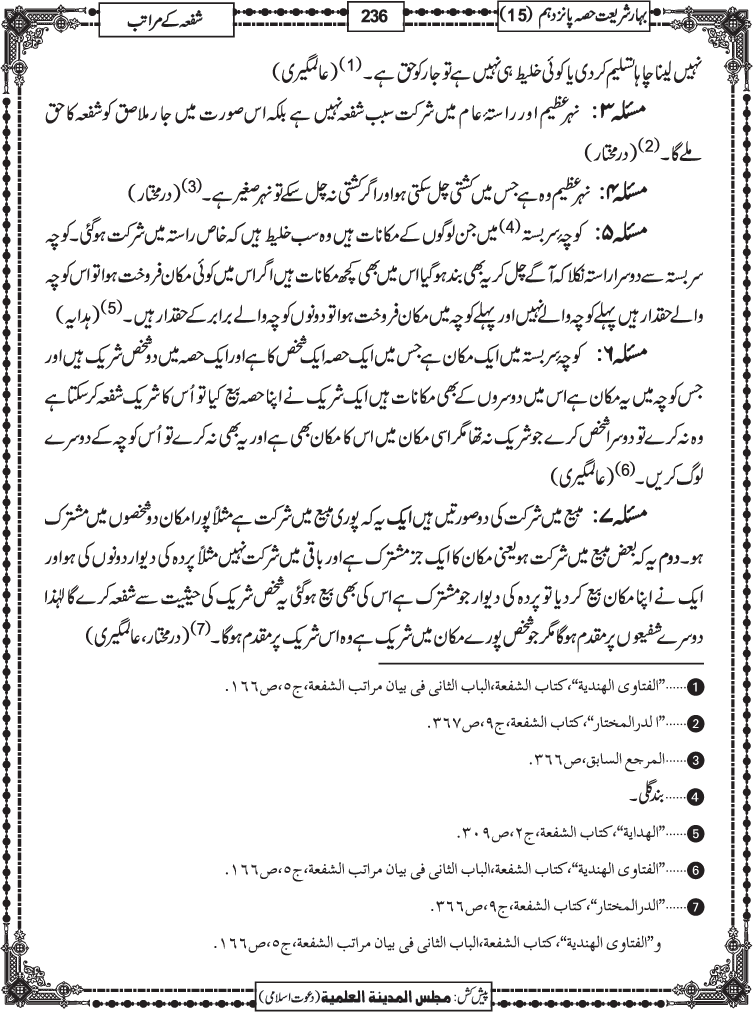 بہار شریعت حصہ پانزدہم (15)
236
شفعہ کے مراتب
نہیں لینا چاہا تسلیم کر دی یا کوئی خلیط ہی نہیں ہے تو جار کو حق ہے۔(1) (عالمگیری)
مسئلہ ۳: نہر عظیم اور راستۂ عام میں شرکت سبب شفعہ نہیں ہے بلکہ اس صورت میں جار ملاصق کو شفعہ کا حق
ملے گا۔(2) (درمختار)
مسئلہ ۴: نہر عظیم وہ ہے جس میں کشتی چل سکتی ہو اور اگر کشتی نہ چل سکے تو نہر صغیر ہے۔(3) (درمختار)
مسئلہ ۵: کوچۂ سربستہ(4) میں جن لوگوں کے مکانات ہیں وہ سب خلیط ہیں کہ خاص راستہ میں شرکت ہوگئی۔ کوچہ
سربستہ سے دوسرا راستہ نکلا کہ آگے چل کر یہ بھی بند ہوگیا اس میں بھی کچھ مکانات ہیں اگر اس میں کوئی مکان فروخت ہوا تو اس کوچہ
والے حقدار ہیں پہلے کوچہ والے نہیں اور پہلے کوچہ میں مکان فروخت ہوا تو دونوں کوچہ والے برابر کے حقدار ہیں۔(5) (ہدایہ)
مسئلہ ۶: کوچۂ سربستہ میں ایک مکان ہے جس میں ایک حصہ ایک شخص کا ہے اور ایک حصہ میں دو شخص شریک ہیں اور
جس کوچہ میں یہ مکان ہے اس میں دوسروں کے بھی مکانات ہیں ایک شریک نے اپنا حصہ بیع کیا تو اُس کا شریک شفعہ کر سکتا ہے
وہ نہ کرے تو دوسرا شخص کرے جو شریک نہ تھا مگر اسی مکان میں اس کا مکان بھی ہے اور یہ بھی نہ کرے تو اُس کوچہ کے دوسرے
لوگ کریں۔(6) (عالمگیری)
مسئلہ ۷: مبیع میں شرکت کی دو صورتیں ہیں ایک یہ کہ پوری مبیع میں شرکت ہے مثلاً پورا مکان دو شخصوں میں مشترک
ہو۔ دوم یہ کہ بعض مبیع میں شرکت ہو یعنی مکان کا ایک جز مشترک ہے اور باقی میں شرکت نہیں مثلاً پردہ کی دیوار دونوں کی ہو اور
ایک نے اپنا مکان بیع کر دیا تو پردہ کی دیوار جو مشترک ہے اس کی بھی بیع ہوگئی یہ شخص شریک کی حیثیت سے شفعہ کرے گا لہٰذا
دوسرے شفیعوں پر مقدم ہوگا مگر جو شخص پورے مکان میں شریک ہے وہ اس شریک پر مقدم ہوگا۔(7) (درمختار، عالمگیری)
1 ......"الفتاوی الهندیة"، کتاب الشفعة، الباب الثانی فی بیان مراتب الشفعة، ج۵، ص۱۶۶.
2 ......"الدرالمختار"، کتاب الشفعة، ج۹، ص۳۶۷.
3 ......المرجع السابق، ص۳۶۶.
4 ......بند گلی۔
5 ......"الهدایة"، کتاب الشفعة، ج۲، ص۳۰۹.
6 ......"الفتاوی الهندیة"، کتاب الشفعة، الباب الثانی فی بیان مراتب الشفعة، ج۵، ص۱۶۶.
7 ......"الدرالمختار"، کتاب الشفعة، ج۹، ص۳۶۶.
و "الفتاوی الهندیة"، کتاب الشفعة، الباب الثانی فی بیان مراتب الشفعة، ج۵، ص۱۶۶.
پیش کش: مجلس المدینة العلمیة (دعوت اسلامی)